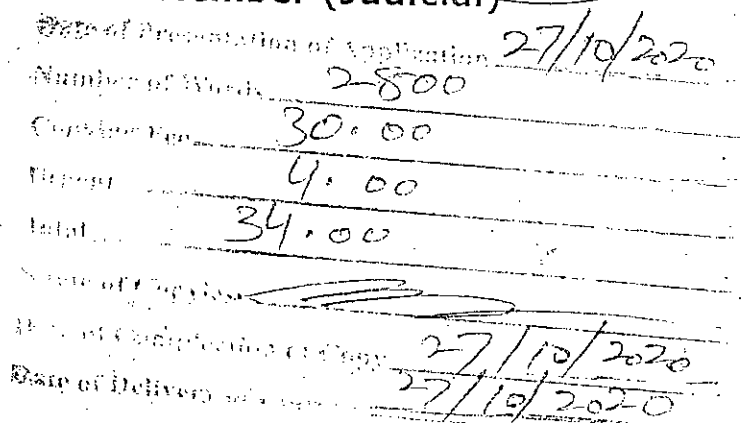 (Judicial)
Date of Presentation of Application 27/10/2020
Number of Words 2800
Copying Fee 30.00
Urgent 4.00
Total 34.00
of Copyiest
of Completion of Copy 27/10/2020
Date of Delivery of Copy 27/10/2020